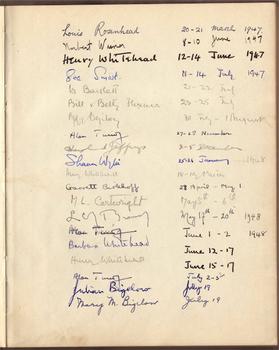 Louis Rosenhead 20-21 March 1947
Norbert Wiener 8-10 June 1947
Henry Whitehead 12-14 June 1947
Smart 11-14 July 1947
Bartlett 21-22 July
Bill & Betty 23-25 July
30 July - 1 August
Alan Turing 27-28 November
Jeffreys
Shaun Wylie 25-26 January 1948
Henry Whitehead
Garrett Birkhoff 28 April - May 1
M. L. Cartwright May 5th - 6th
May 17th - 20th 1948
Alan Turing June 1 - 2 1948
Barbara Whitehead June 12-17
Henry Whitehead June 15-17
Alan Turing July 2-5
Julian Bigelow July 19
Mary M. Bigelow July 19